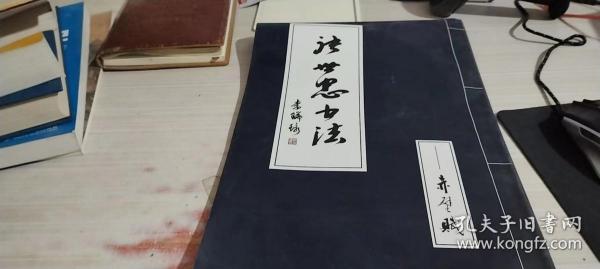 张世忠书法
李铎题
——赤壁赋
孔夫子旧书网
www.kongfz.com